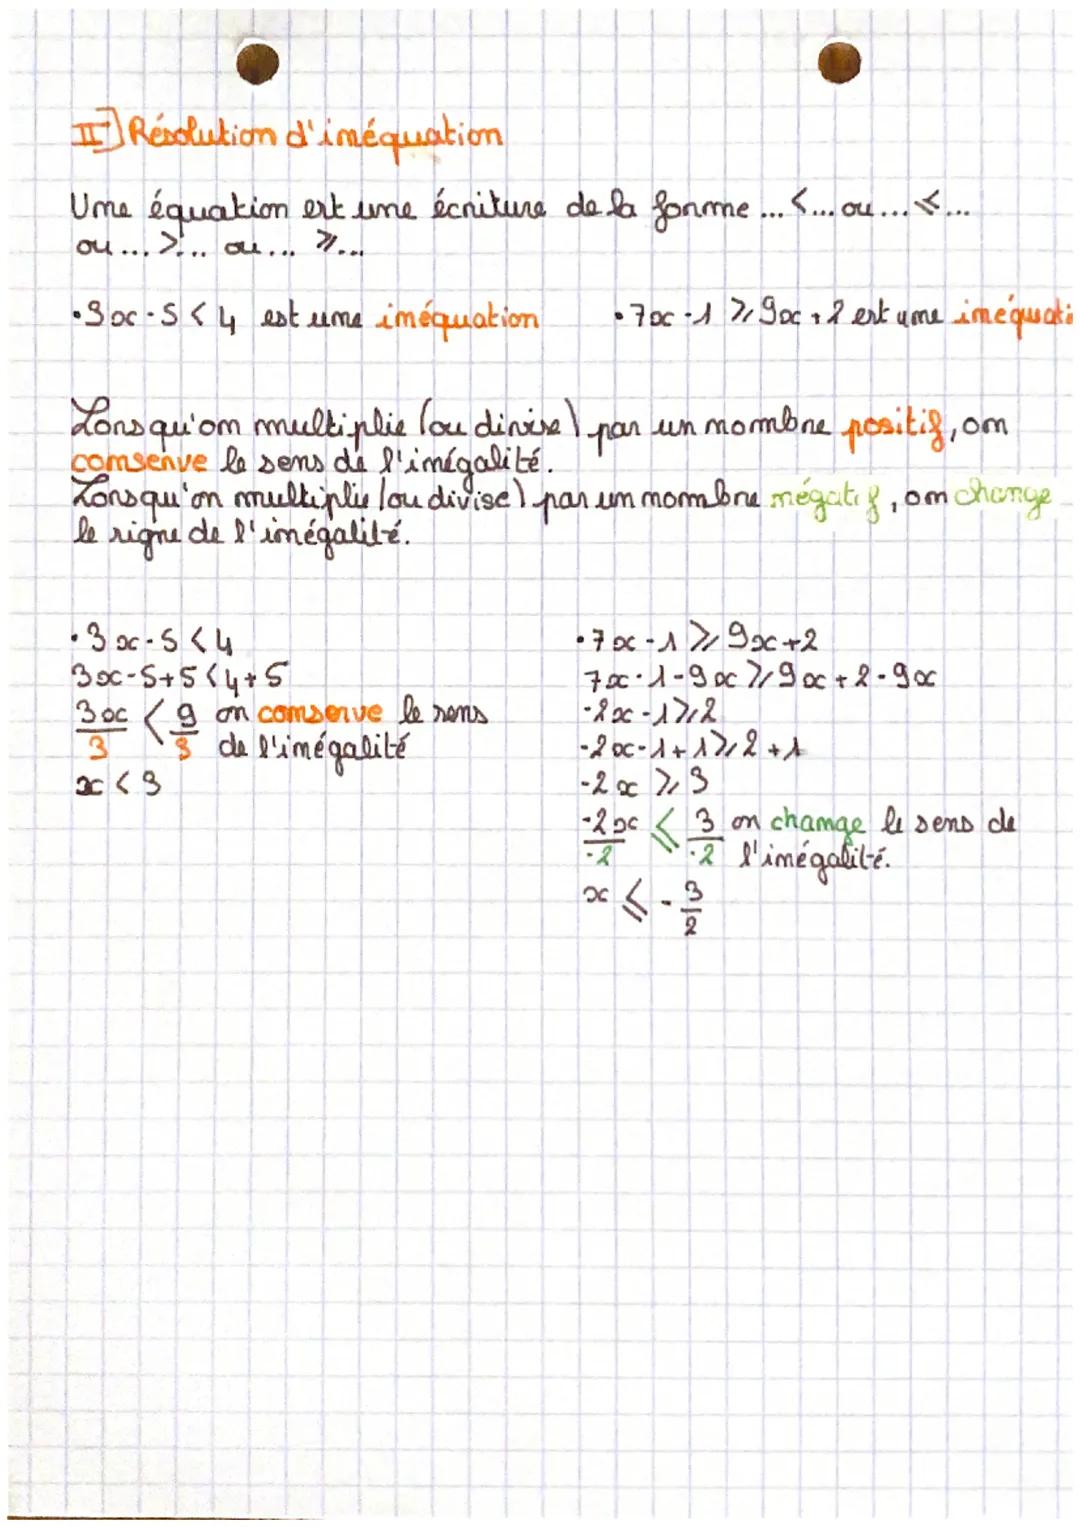 II] Résolution d'inéquation
Une équation est une écriture de la forme ... < ... ou ... ⩽ ...
ou ... > ... ou ... ⩾ ...
• 3x - 5 < 4 est une inéquation
• 7x - 1 ⩾ 9x + 2 est une inéquati
Lorsqu'on multiplie (ou divise) par un nombre positif, on
conserve le sens de l'inégalité.
Lorsqu'on multiplie (ou divise) par un nombre négatif, on change
le signe de l'inégalité.
• 3x - 5 < 4
3x - 5 + 5 < 4 + 5
3x/3 < 9/3 on conserve le sens
de l'inégalité
x < 3
• 7x - 1 ⩾ 9x + 2
7x - 1 - 9x ⩾ 9x + 2 - 9x
-2x - 1 ⩾ 2
-2x - 1 + 1 ⩾ 2 + 1
-2x ⩾ 3
-2x/-2 ⩽ 3/-2 on change le sens de
l'inégalité.
x ⩽ -3/2